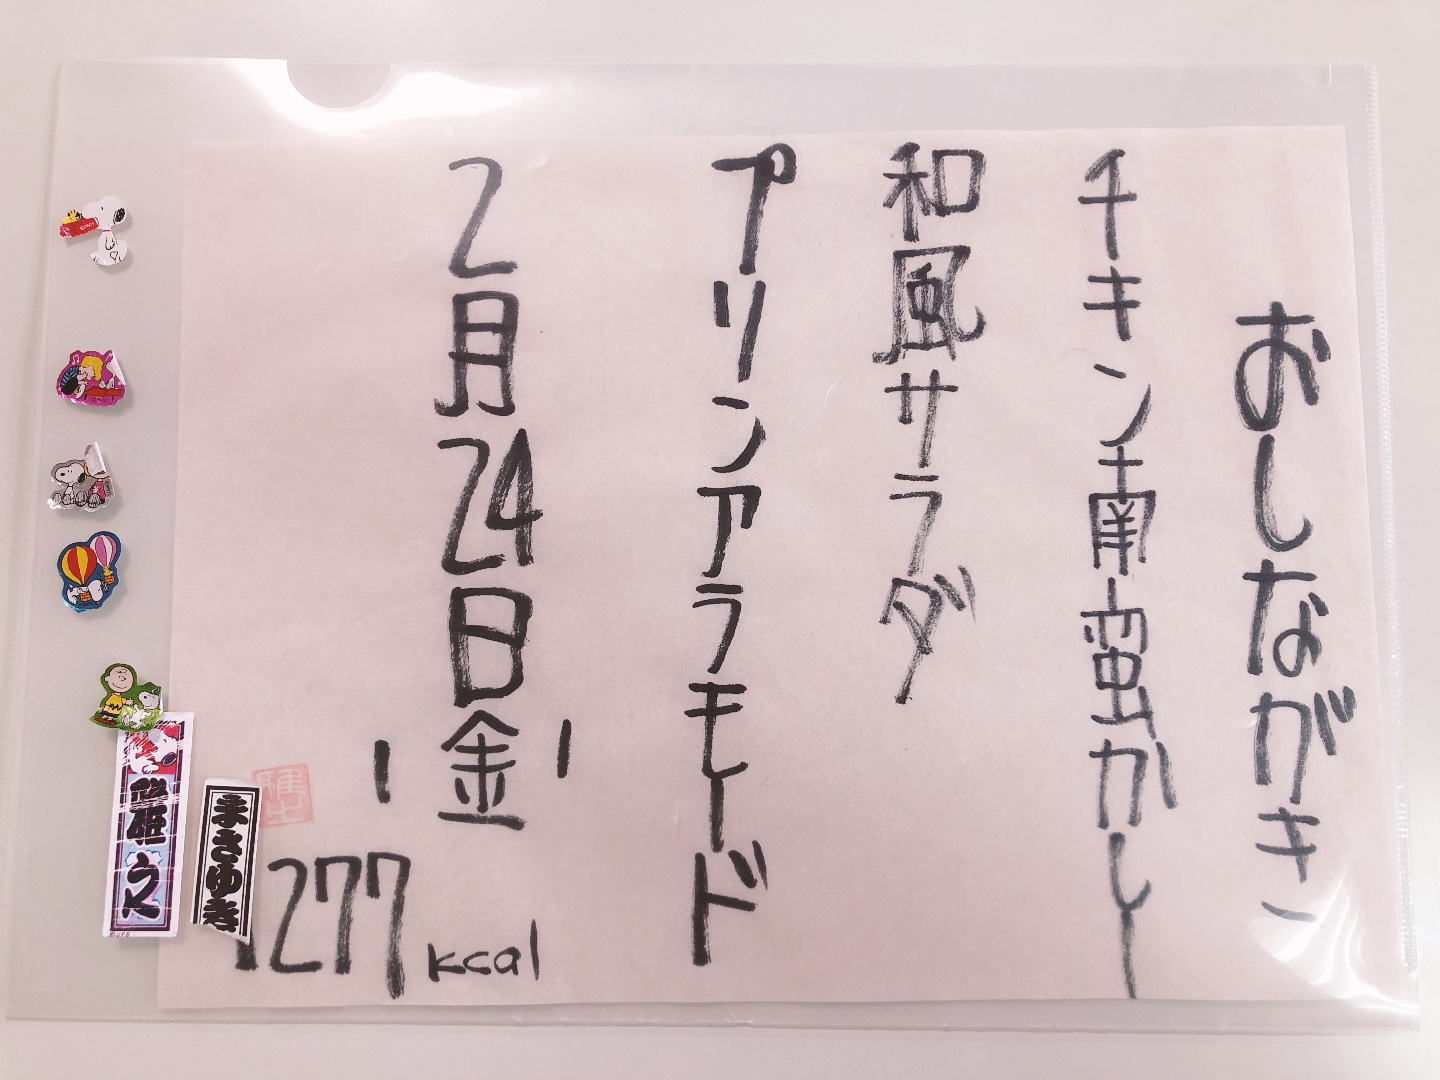 おしながき
チキン南蛮かレー
和風サラダ
プリンアラモード
2月24日金
1277kcal
雅之
まさゆき
雅之